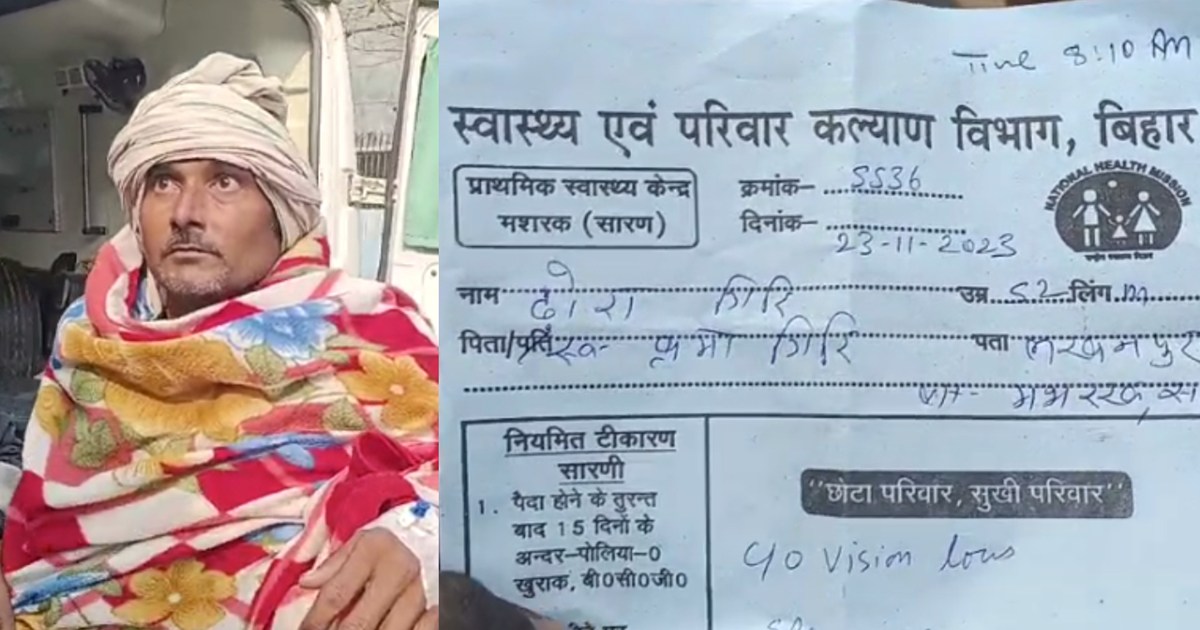 Time 8:10 AM
स्वास्थ्य एवं परिवार कल्याण विभाग, बिहार
प्राथमिक स्वास्थ्य केन्द्र
मशरक (सारण)
क्रमांक- 5536
दिनांक- 23-11-2023
NATIONAL HEALTH MISSION
नाम ढोरा गिरि उम्र 52 लिंग M
पिता/पति गिरि पता लखनपुर
नियमित टीकारण
सारणी
1. पैदा होने के तुरन्त
बाद 15 दिनों के
अन्दर-पोलिया-0
खुराक, बी0सी0जी0
"छोटा परिवार, सुखी परिवार"
c/o Vision loss